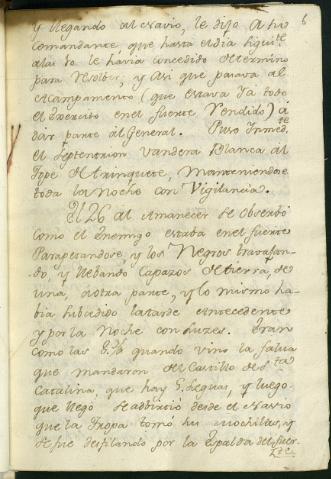 6
y llegando al Navio, le dijo a su
Comandante, que hasta el dia siguite.
alas 10 le havia concedido determino
para Resolver, y Asi que pasava al
el Campamento (que estava Ya todo
el Exercito en el fuerte Rendido) á
dar parte al General. Puso Inmedte.
el Septentrion Vandera Blanca al
tope de trinquete, manteniendose
toda la Noche con Vigilancia.
El 26 al Amanecer se observó
como el Enemigo estaba en el fuerte
Parapetandose, y los Negros travajan-
do, y llebando Capazos de tierra, de
una, á otra parte, y lo mismo ha-
bia subcedido la tarde antecedente
y por la Noche con Luzes. Eran
como las 8 quando vino la falua
que mandaron al Castillo de Sta.
Catalina, que hay 5 leguas, y luego
que llegó se advirtió desde el Navio
que la Tropa tomó sus mochilas, y
se fue desfilando por la Espalda del fuer-